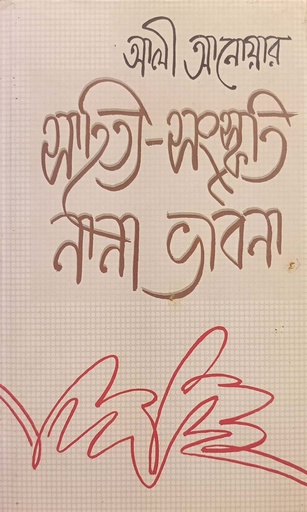 আলী আনোয়ার
সাহিত্য-সংস্কৃতি
নানা ভাবনা